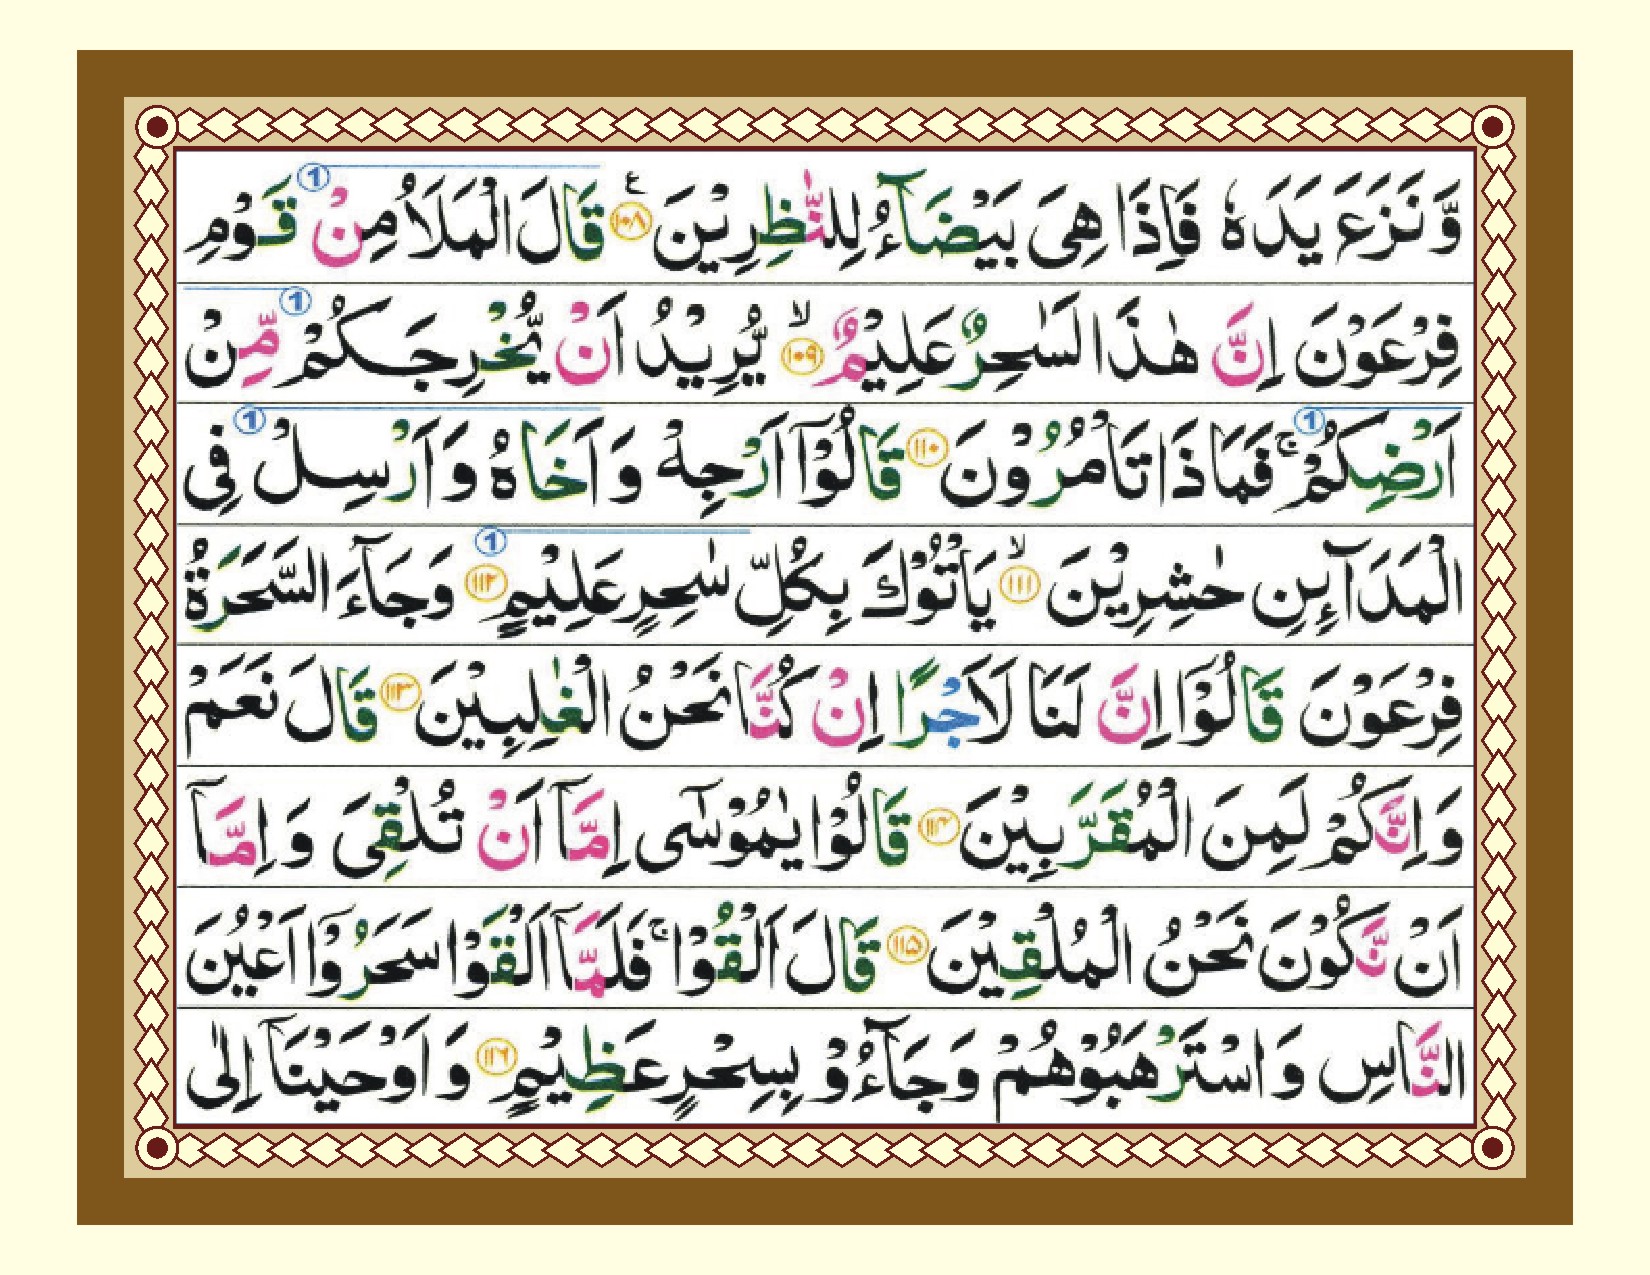 وَّ نَزَعَ يَدَهٗ فَاِذَا هِىَ بَيْضَآءُ لِلنّٰظِرِيْنَ ﴿۱۰۸﴾ ع قَالَ الْمَلَاُ مِنْ ① قَوْمِ
فِرْعَوْنَ اِنَّ هٰذَا لَسٰحِرٌ عَلِيْمٌ ﴿۱۰۹﴾ ۙ يُّرِيْدُ اَنْ يُّخْرِجَكُمْ ① مِّنْ
اَرْضِكُمْ ① ۚ فَمَاذَا تَاْمُرُوْنَ ﴿۱۱۰﴾ قَالُوْۤا اَرْجِهْ وَ اَخَاهُ وَ اَرْسِلْ ① فِى
الْمَدَآئِنِ حٰشِرِيْنَ ﴿۱۱۱﴾ ۙ يَاْتُوْكَ بِكُلِّ سٰحِرٍ عَلِيْمٍ ① ﴿۱۱۲﴾ وَجَآءَ السَّحَرَةُ
فِرْعَوْنَ قَالُوْۤا اِنَّ لَنَا لَاَجْرًا اِنْ كُنَّا نَحْنُ الْغٰلِبِيْنَ ﴿۱۱۳﴾ قَالَ نَعَمْ
وَ اِنَّكُمْ لَمِنَ الْمُقَرَّبِيْنَ ﴿۱۱۴﴾ قَالُوْا يٰمُوْسٰٓى اِمَّاۤ اَنْ تُلْقِىَ وَ اِمَّاۤ
اَنْ نَّكُوْنَ نَحْنُ الْمُلْقِيْنَ ﴿۱۱۵﴾ قَالَ اَلْقُوْا ۚ فَلَمَّاۤ اَلْقَوْا سَحَرُوْۤا اَعْيُنَ
النَّاسِ وَ اسْتَرْهَبُوْهُمْ وَجَآءُوْ بِسِحْرٍ عَظِيْمٍ ﴿۱۱۶﴾ وَ اَوْحَيْنَاۤ اِلٰى